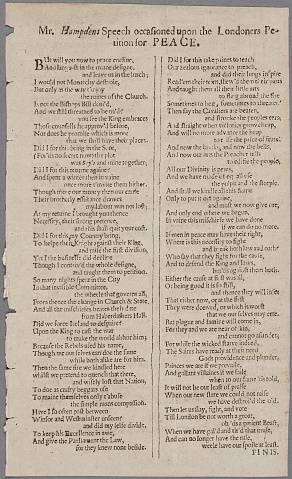 Mr. Hampdens Speech occasioned upon the Londoners Pe-
tition for PEACE.
But will you now to peace encline,
And languish in the maine designe,
and leave us in the lurch;
I would not Monarchy destroy,
But only as the way t'enjoy
the ruines of the Church.
Is not the Bishops Bill deni'd,
And we still threatned to be
you see the King embraces
Those counsells he approv'd before,
Nor does he promise which is more
that we shall have their places.
Did I for this bring in the Scot,
(For 'tis no secret now) the plot
was Say's and mine together;
Did I for this returne againe
And spend a winter there in vaine
once more t'invite them hither.
Though more our money then our cause
Their brotherly assistance drawes
my labour was not lost;
At my returne I brought you thence
Necessity, their strong pretence,
and this shall quit your cost.
Did I for this my Country bring,
To helpe their Knight against their King,
and raise the first division,
Yet I the businesse did decline
Though I contriv'd the whole designe,
and taught them to petition.
So many nights spent in the City
In that invisible Committee,
the wheele that governs all,
From thence the change in Church & State,
And all the mischiefes beare their date
from Haberdashers Hall.
Did we force Ireland to despaire
Upon the King to cast the war
to make the world abhor him;
Because the Rebels used his name,
Though we our selves can doe the same
while both alike are for him.
Then the same fire we kindled here
whilst we pretend to quench that there,
and wisely lost that Nation,
To doe as crafty beggars use
To maime themselves only t'abuse
the simple mans compassion.
Have I so often past between
Winsor and Westminster unseen?
and did my selfe divide,
To keep his Excellence in awe,
And give the Parliament the Law,
for they knew none beside.
Did I for this take paines to teach
Our zealous ignorants to preach,
and did their lungs inspire
Read them their text, shew'd them their parts
And taught them all their little arts
to fling abroad the fire
Sometimes to beg, sometimes to threaten,
Then say the Cavaliers are beaten,
and stroake the peoples eares,
And straight when victory growes cheap,
And will no more advance the heap
And now the Books, and now the bells,
And now our act the Preacher tells
to edifie the people,
All our Divinity is news,
And we have made of equall use
the pulpit and the steeple.
And shall we kindle all this flame
Only to put it out againe,
and must we now give ore,
And only end where we began,
In vaine this mischiefe we have done
if we can do no more.
If men in peace may have their right,
Where is the necessity to fight
and breake both law and oath?
Who say that they fight for the cause,
And to defend the King and laws,
but us against them both.
Either the cause at first was ill,
Or being good it is so still,
and thence they will infer
That either now, or at the first
They were deceiv'd, or which is worst
that we our selves may erre.
But plague and famine will come in,
For they and we are neer of kin,
and cannot go asunder;
For while the wicked starve indeed,
The Saints have ready at their need
Gods providence and plunder.
Princes we are if we prevaile,
And gallant villaines if we faile
when to our fame 'tis told,
It will not be our least of praise
When our new state we could not raise
we have destroi'd the old.
Then let us stay, fight, and vote
Till London be not worth a groat,
oh 'tis a patient Beast,
When we have gal'd and tir'd the mule,
And can no longer have the rule,
weele have our spoile at least.
FINIS.